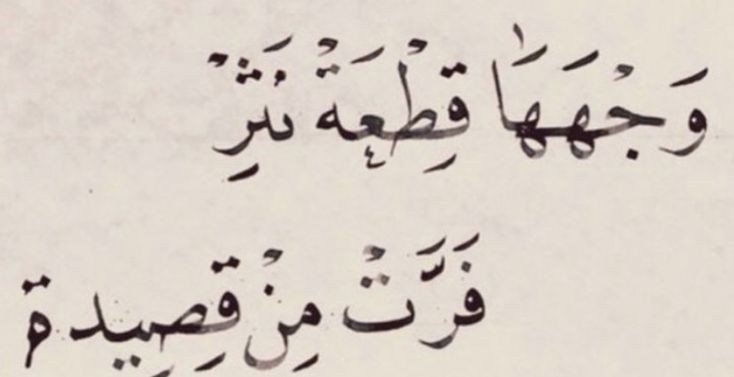 وَجْهَهَا قِطْعَةْ نَثِرْ
فَرَّتْ مِنْ قِصِيدة